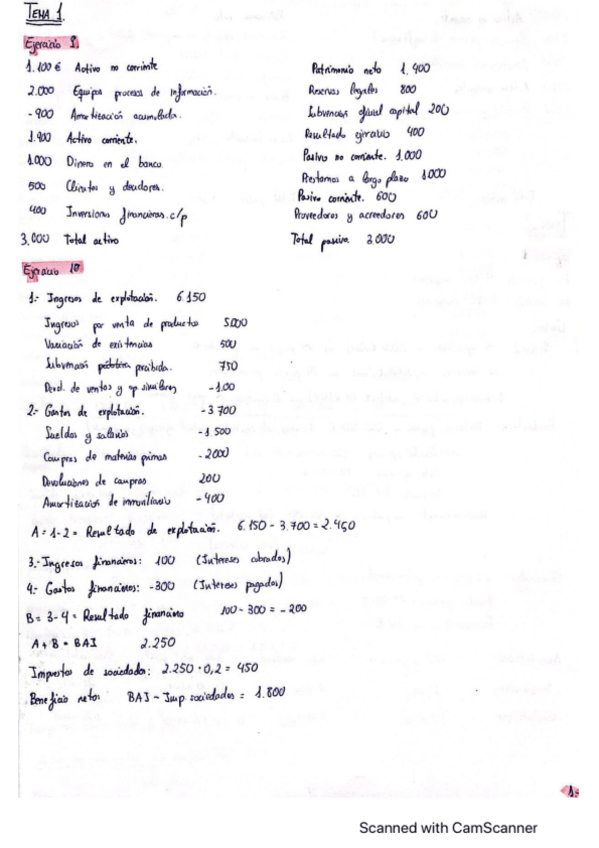 TEMA 1
Ejercicio 9.
1.100€ Activo no corriente
2.000 Equipos procesos de información.
-900 Amortización acumulada.
1.900 Activo corriente.
1.000 Dinero en el banco.
500 Clientes y deudores.
400 Inversiones financieras c/p
3.000 Total activo
Patrimonio neto 1.400
Reservas legales 800
Subvención oficial capital 200
Resultado ejercicio 400
Pasivo no corriente. 1.000
Prestamos a largo plazo 1000
Pasivo corriente. 600
Proveedores y acreedores 600
Total pasivo 3.000
Ejercicio 10
1.- Ingresos de explotación. 6.150
Ingresos por venta de productos 5.000
Variación de existencias 500
Subvención recibida. 750
Devol. de ventas y op similares -100
2.- Gastos de explotación. -3.700
Sueldos y salarios -1.500
Compras de materias primas -2000
Devoluciones de compras 200
Amortización de inmovilizado -400
A = 1-2 = Resultado de explotación. 6.150 - 3.700 = 2.450
3.- Ingresos financieros: 100 (Intereses cobrados)
4.- Gastos financieros: -300 (Intereses pagados)
B = 3-4 = Resultado financiero 100 - 300 = -200
A + B = BAI 2.250
Impuestos de sociedades: 2.250 · 0,2 = 450
Beneficio neto: BAI - Imp sociedades = 1.800
1.-
Scanned with CamScanner